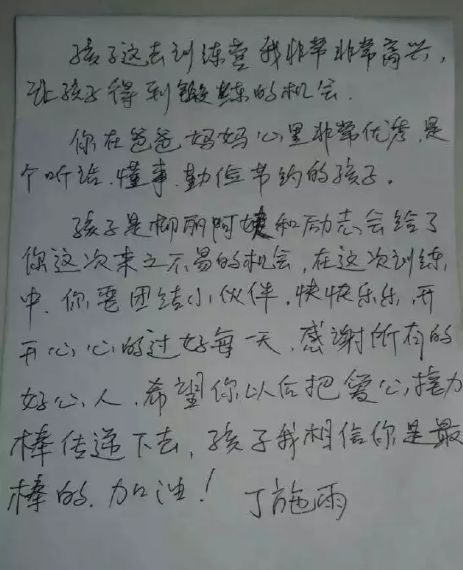 孩子这去训练营我非常非常高兴,
让孩子得到锻炼的机会.
你在爸爸,妈妈心里非常优秀,是
个听话.懂事.勤俭节约的孩子。
孩子是柳丽阿姨和励志会给了
你这次来之不易的机会,在这次训练
中.你要团结小伙伴.快快乐乐,开
开心心的过好每一天.感谢所有的
好心人.希望你以后把爱心接力
棒传递下去,孩子我相信你是最
棒的.加油! 丁施雨